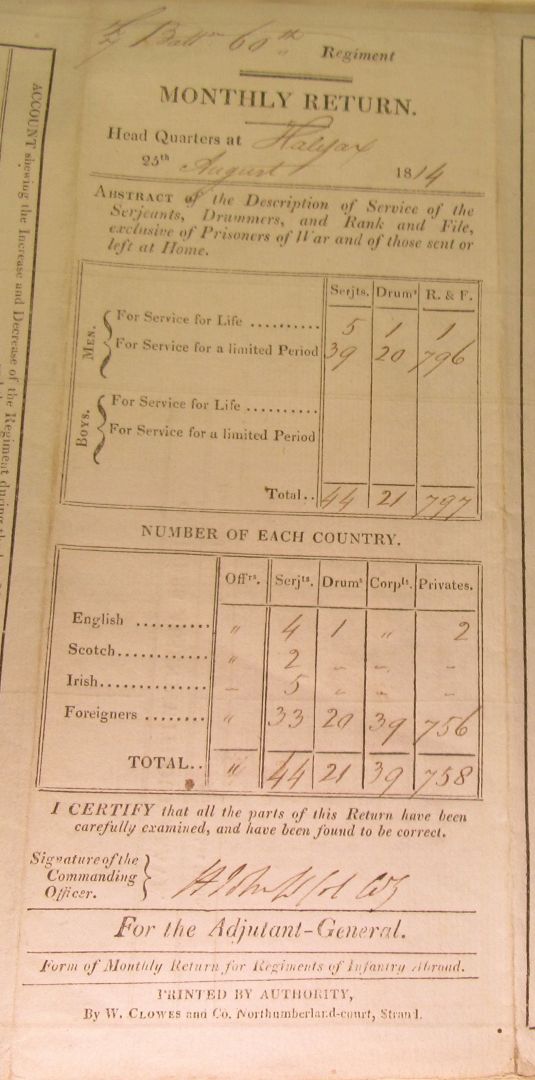 7 Battn 60th Regiment
MONTHLY RETURN.
Head Quarters at Halifax
25th August 1814
ABSTRACT of the Description of Service of the
Serjeants, Drummers, and Rank and File,
exclusive of Prisoners of War and of those sent or
left at Home.
Serjts. Drums R. & F.
Men. For Service for Life .......... 5 1 1
For Service for a limited Period 39 20 796
Boys. For Service for Life ..........
For Service for a limited Period
Total.. 44 21 797
NUMBER OF EACH COUNTRY.
Offrs. Serjts. Drums Corpls. Privates.
English .......... " 4 1 " 2
Scotch............ " 2 – – –
Irish.............. – 5 " – –
Foreigners ........ " 33 20 39 756
TOTAL.. " 44 21 39 758
I CERTIFY that all the parts of this Return have been
carefully examined, and have been found to be correct.
Signature of the
Commanding
Officer.
For the Adjutant-General.
Form of Monthly Return for Regiments of Infantry Abroad.
PRINTED BY AUTHORITY,
By W. CLOWES and Co. Northumberland-court, Strand.
ACCOUNT shewing the Increase and Decrease of the Regiment during